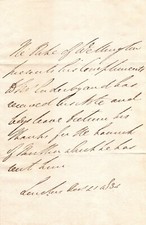 The Duke of Wellington
presents his Compliments
to Mr Enderby and has
received his note and
begs leave to return his
thanks for the
of which he has
sent him
London Nov 21 183